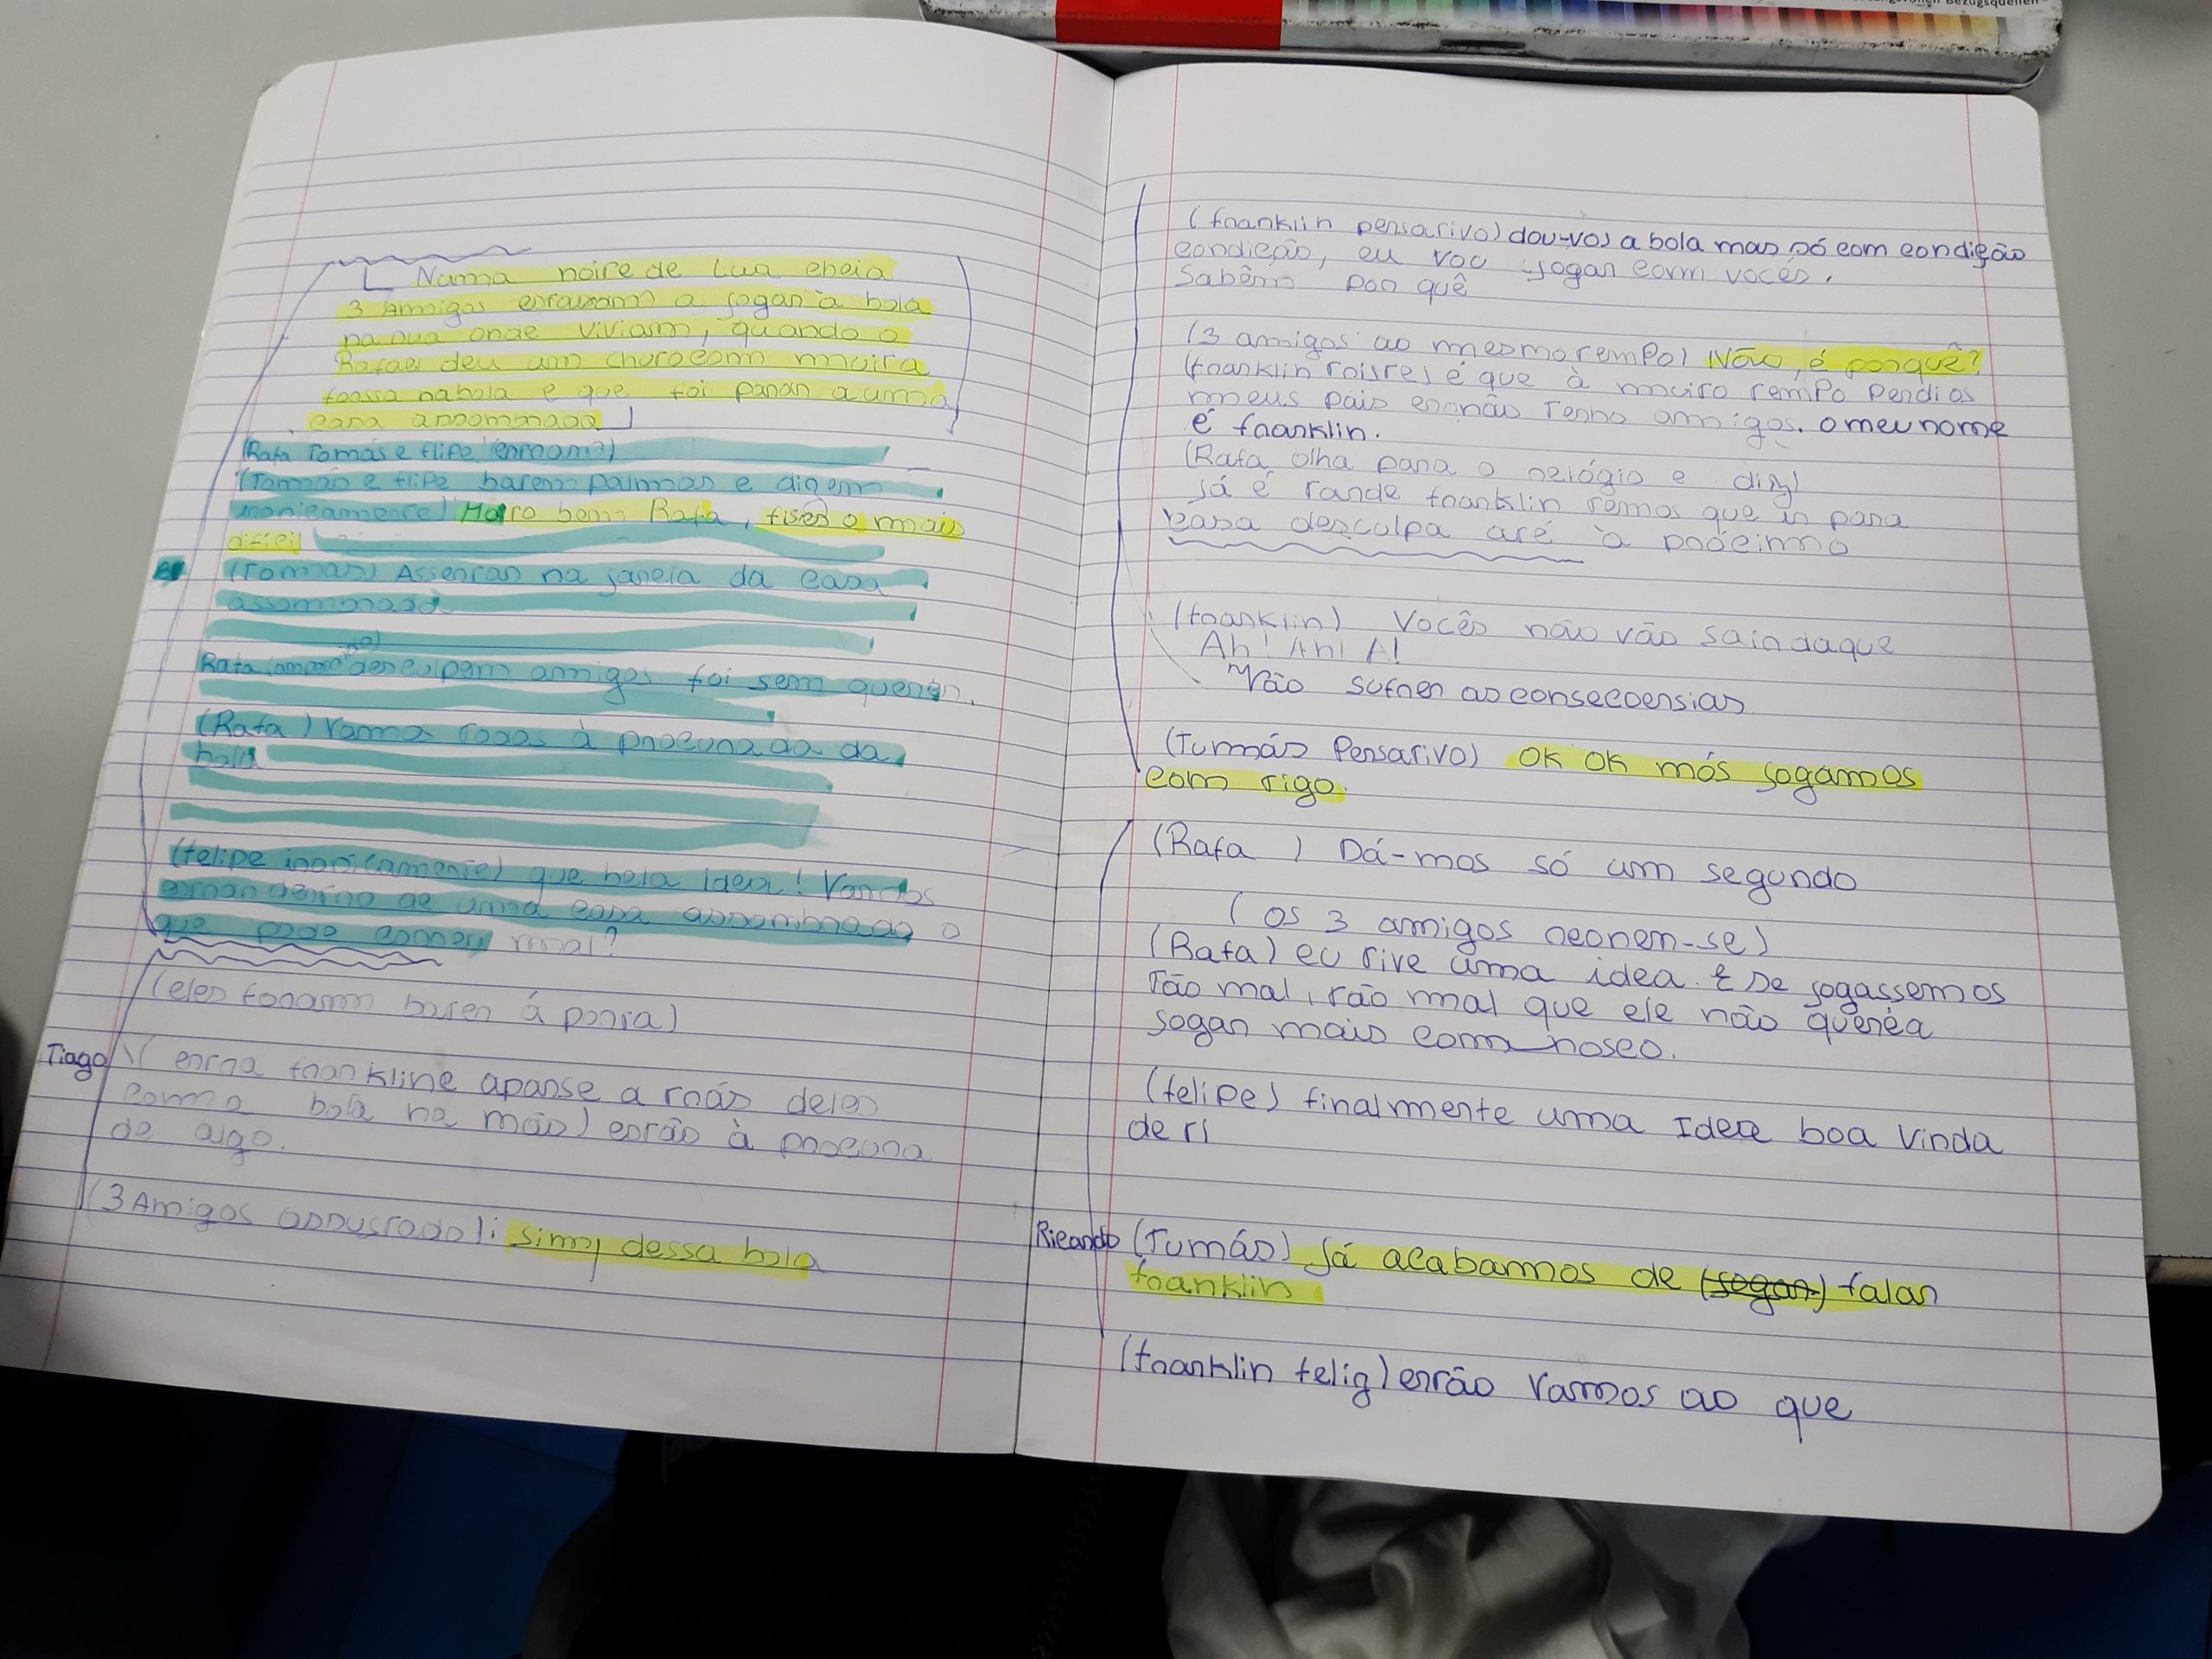 Numa noite de Lua cheia
3 Amigos estavam a jogar à bola
na rua onde viviam, quando o
Rafael deu um chuto com muita
forssa na bola e que foi parar a uma
casa assombrada
(Rafa Tomás e flipe entram)
(Tomás e flipe batem palmas e dizem
ironicamente) Moito bem Rafa, fises o mais
dificil
(Tomás) Assentar na janela da casa
assombrada
Rafa desculpem amigos foi sem querer.
(Rafa) Vamos todos à procurada da
bola
(felipe ironicamente) que bela idea! Vamos
entrar dentro de uma casa assombrada o
que pode correr mal?
(eles foram bater á porta)
Tiago (entra frankline aparse a trás deles
com a bola na mão) estão à procura
de algo.
(3 Amigos assustado): sim, dessa bola
(franklin pensativo) dou-vos a bola mas só com condição
condição, eu vou jogar com vocês.
Sabêm por quê
(3 amigos ao mesmo tempo) Não, é porquê?
(franklin toistre) é que à muito tempo perdi os
meus pais e não tenho amigos. o meu nome
é franklin.
(Rafa olha para o relógio e diz)
Já é tarde franklin temos que ir para
casa desculpa até à prócimo
(franklin) Vocês não vão sair daque
Ah! Ah! A!
Vão sufrer as consecoensias
(Tumás Pensativo) OK OK nós jogamos
com tigo.
(Rafa ) Dá-nos só um segundo
(os 3 amigos reonem-se)
(Rafa) eu tive uma idea. E se jogassemos
Tão mal, tão mal que ele não queréa
jogar mais com nosco.
(felipe) finalmente uma Idea boa vinda
de ti
Ricardo (Tumás) Já acabarmos de (jogar) falar
franklin
(franklin felig) então vamos ao que